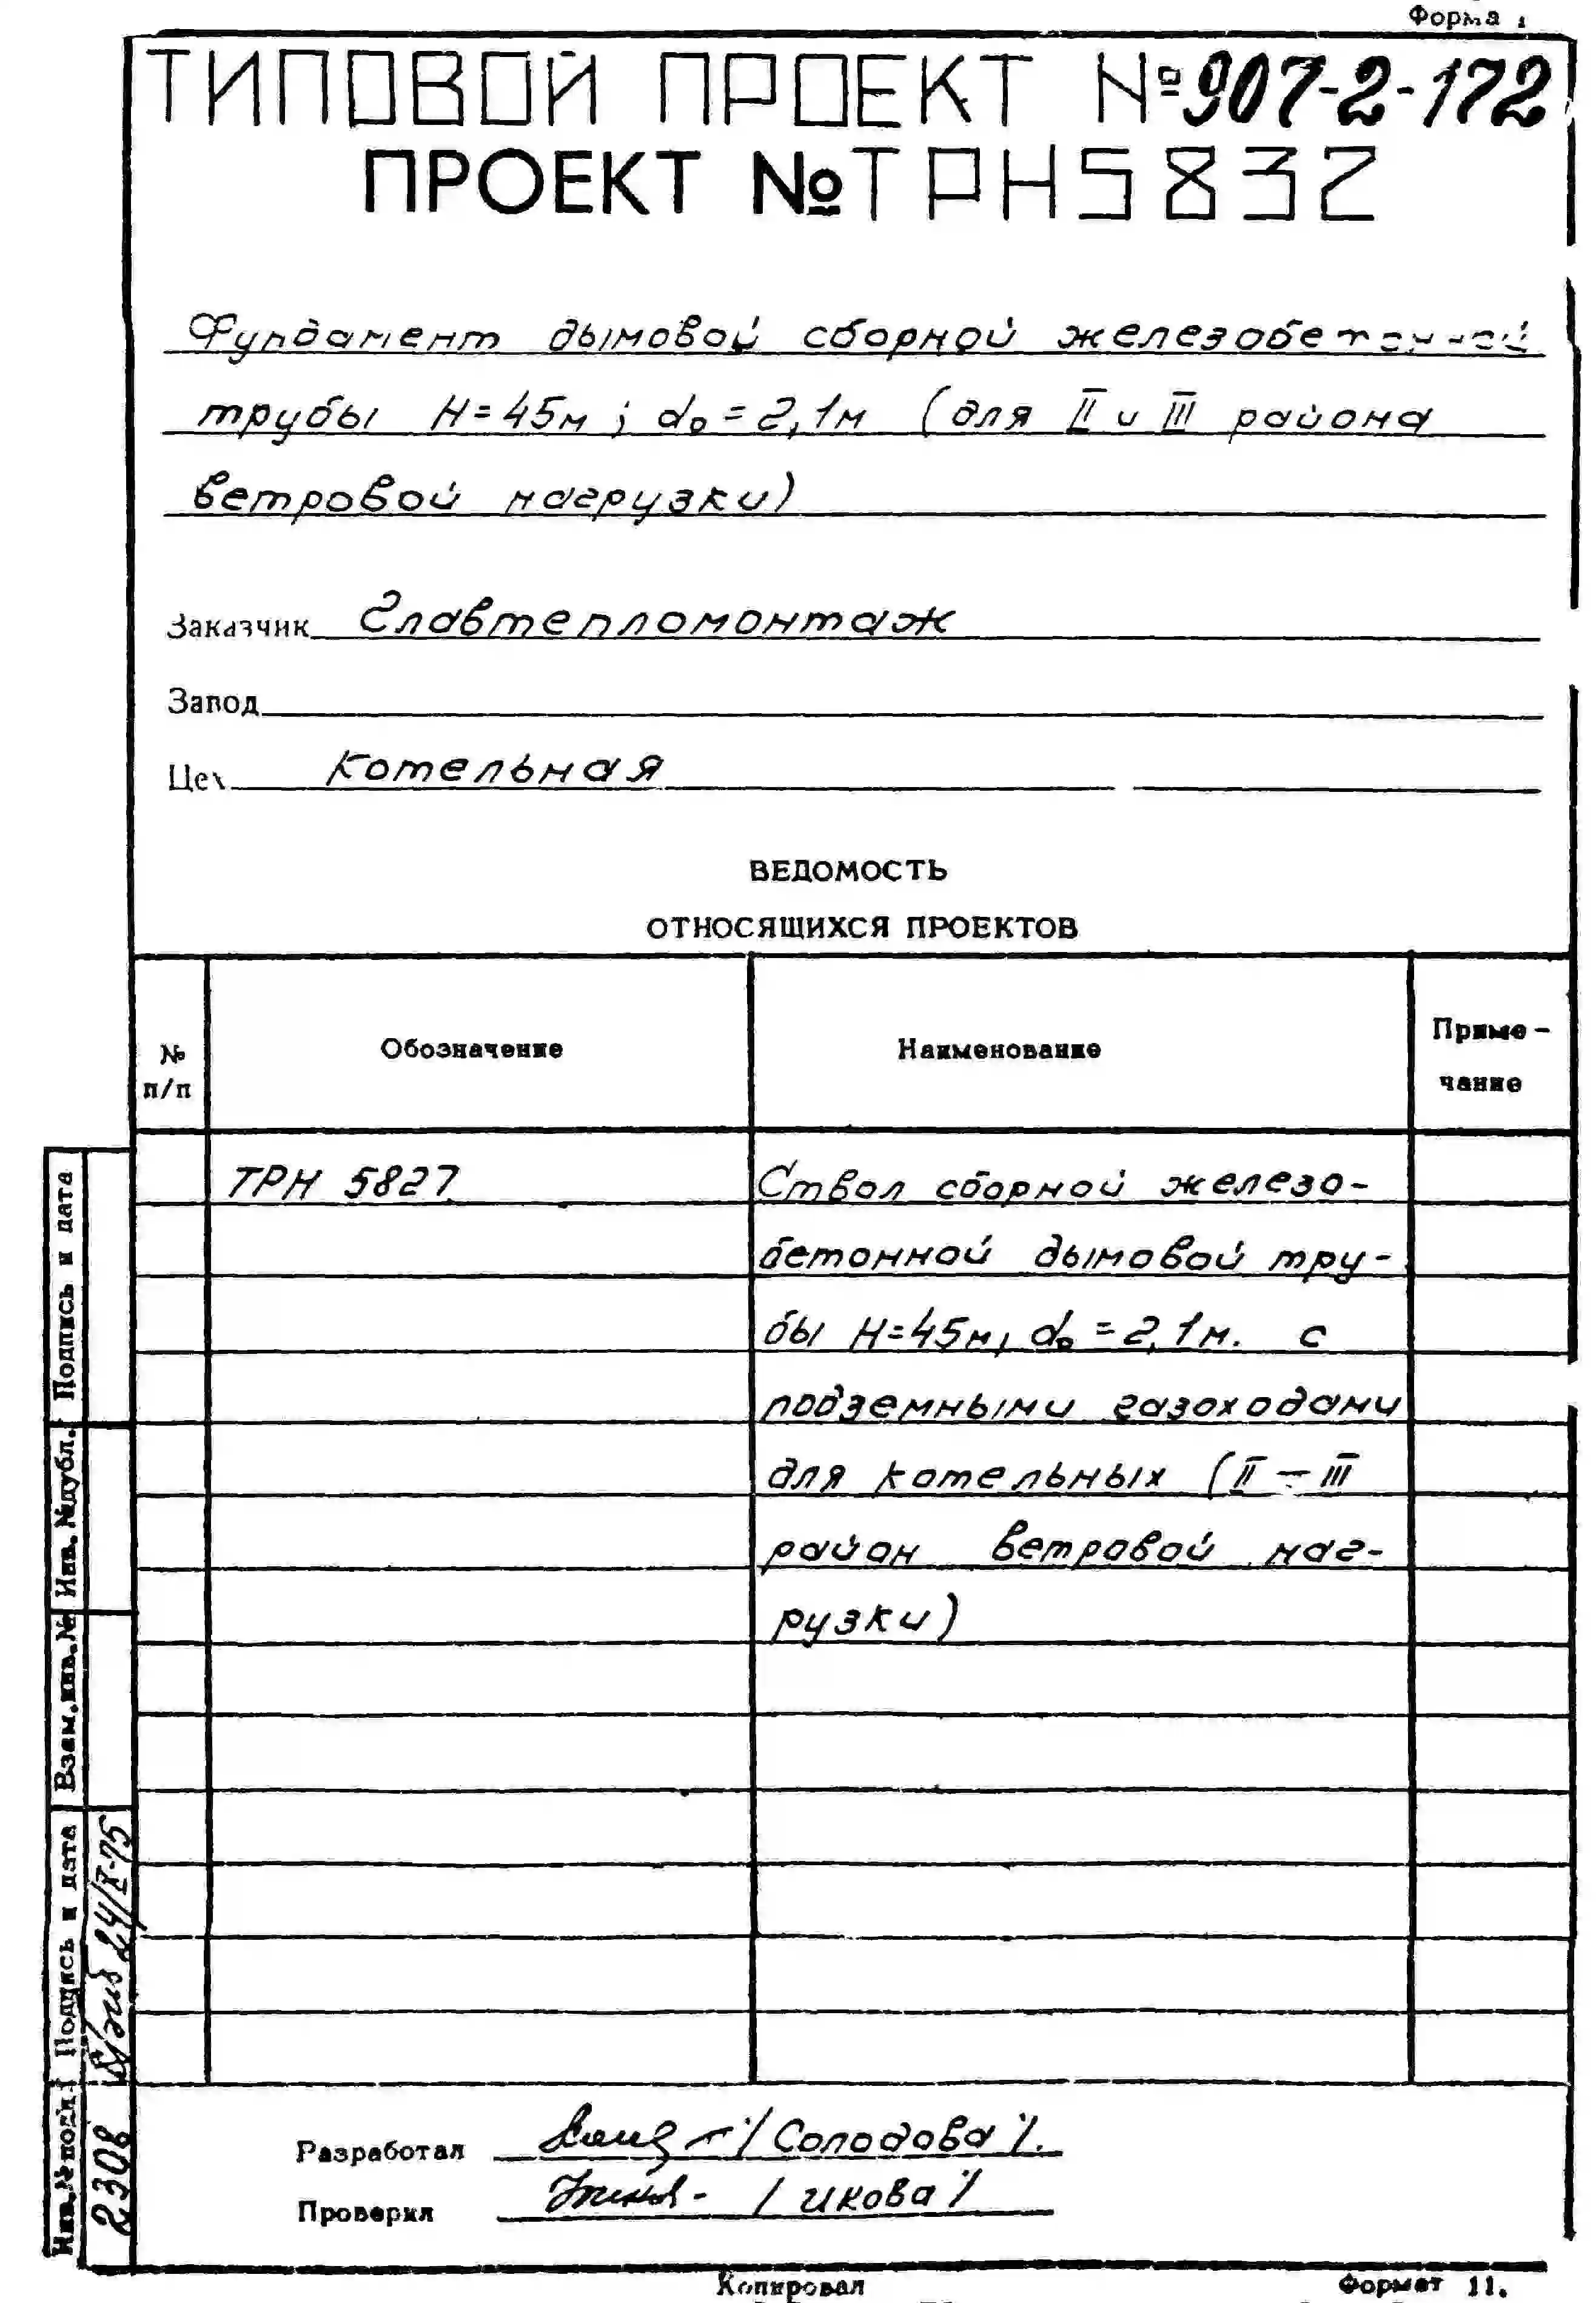 Форма 1
ТИПОВОЙ ПРОЕКТ №907-2-172
ПРОЕКТ №ТРН5832
Фундамент дымовой сборной железобетонной
трубы Н=45м; d₀=2,1м (для II и III района
ветровой нагрузки)
Заказчик Главтепломонтаж
Завод
Цех Котельная
ВЕДОМОСТЬ
ОТНОСЯЩИХСЯ ПРОЕКТОВ
№ п/п
Обозначение
Наименование
Приме-
чание
ТРН 5827
Ствол сборной железо-
бетонной дымовой тру-
бы Н=45м, d₀=2,1м. с
подземными газоходами
для котельных (II – III
район ветровой наг-
рузки)
Подпись и дата
Инв. №дубл.
Взам.инв.№
Подпись и дата
24/X-75
Инв.№подл.
2308
Разработал /Солодова/.
Проверил /Икова/
Копировал
Формат 11.